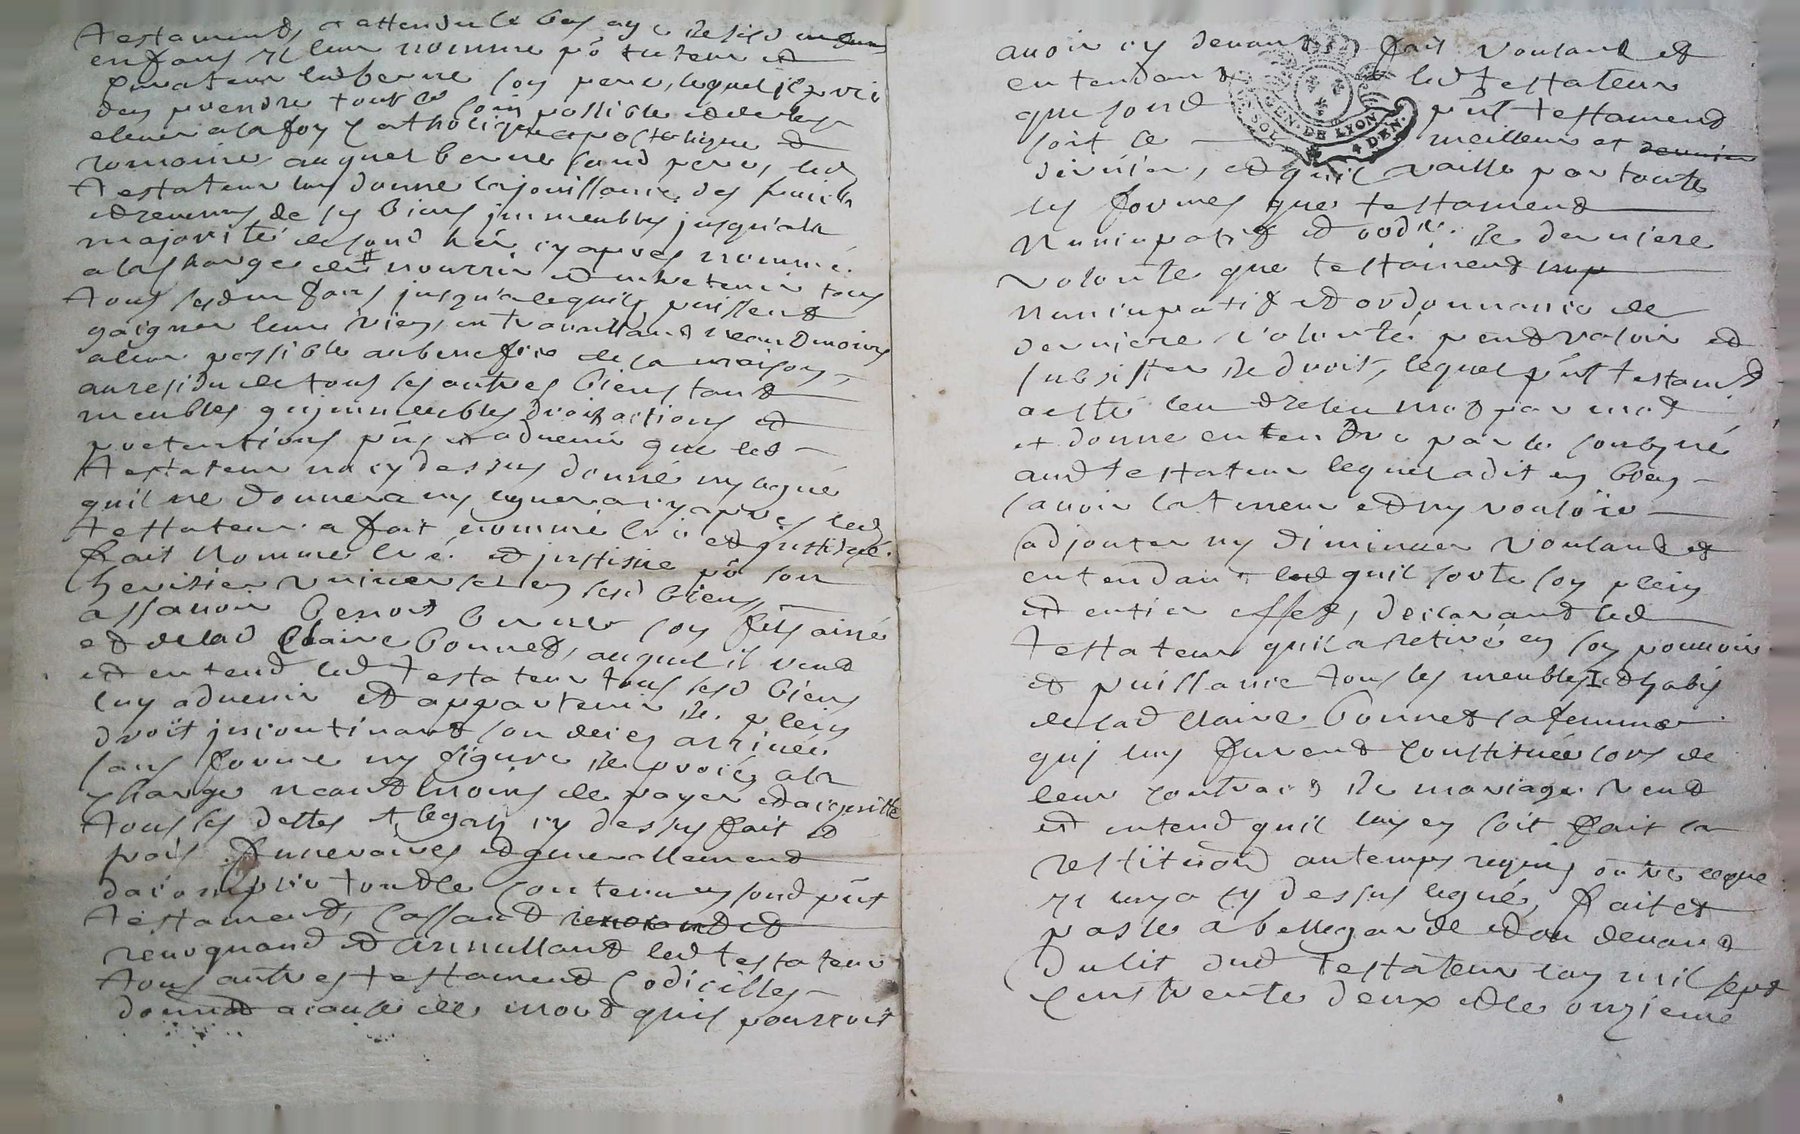 testament, et attendu le bas age de sesd
enfans il leur nomme po tuteur et
Curateur led benne son pere, lequel il prie
den prendre tout le soin possible et de les
elever a la foy Catholique apostolique et
romaine auquel benne sond pere, led
testateur luy donne la jouissance des fruicts
et revenus de ses biens immeubles jusqu'a la
majorité de sond her cy apres nommé.
a la charge de nourrir et entretenir tous
sesd enfans jusqu'a ce quils puissent
gaigner leur vie, en travaillant neantmoins
a leur possible au benefice de la maison,
au residu de tous ses autres biens tant
meubles qu jmmeubles droits actions et
pretentions pnt et advenir que led
testateur na cy dessus donné ny legué
quil ne donnera ny leguera cy apres led
testateur a fait nommé
fait nomme cré. et jnstitue po son
heritier universel en sesd biens,
assavoir benoit benne son fils ainé
et de lad Claire bonnet, auquel il veut
et entend led testateur tous sesd biens
luy advenir et appartenir de plein
droit jncontinant son deces arrivée
sans forme ny figure de procès a la
charge neantmoins de payer et acquitte
tous ses dettes legats cy dessus fait et
frais funeraires et generallement
dacomplir tout le contenu en sond pnt
testament, Cassant
revoquand et annullant led testateur
tous autres testament Codicilles
donnat a cause de mort quil pourroit
avoir cy devant fait voulant et
entendant led testateur
que sond pnt testament
soit le meilleur et
dernier, et quil vaille par toute
les formes que testament
Nuncupatif et de derniere
volonte que testament
nuncupatif et ordonnance de
derniere volonté peut valoir et
subsister de droit, lequel pnt testamt
a esté leu et releu mot par mot
et donne entendre par le soubsné
aud testateur lequel a dit en bien
savoir la teneur et ny vouloir
adjouter ny diminuer voulant et
entendant quil sorte son plein
et entier effet, declarant led
testateur quil a retiré en son pouvoir
et puissance tous les meubles et habis
de lad Claire bonnet sa femme
qui luy furent Constituée lors de
leur contract de mariage veut
et entend quil luy en soit fait la
restitution au temps requis outre ceque
il luy a cy dessus legué, fait et
passé a bellegarde et au devant
du lit dud testateur lan mil sept
Cens trente deux et le onzieme
GEN. DE LYON